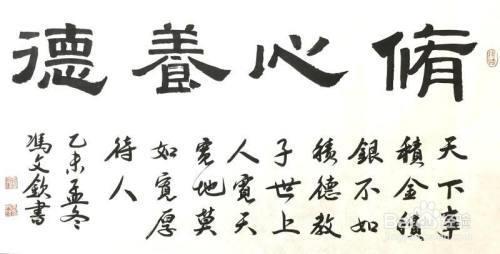 脩心養德
天下辛
積金積
銀不如
積德教
子世上
人寬天
寬地莫
如寬厚
待人
乙未孟冬
馮文欽書